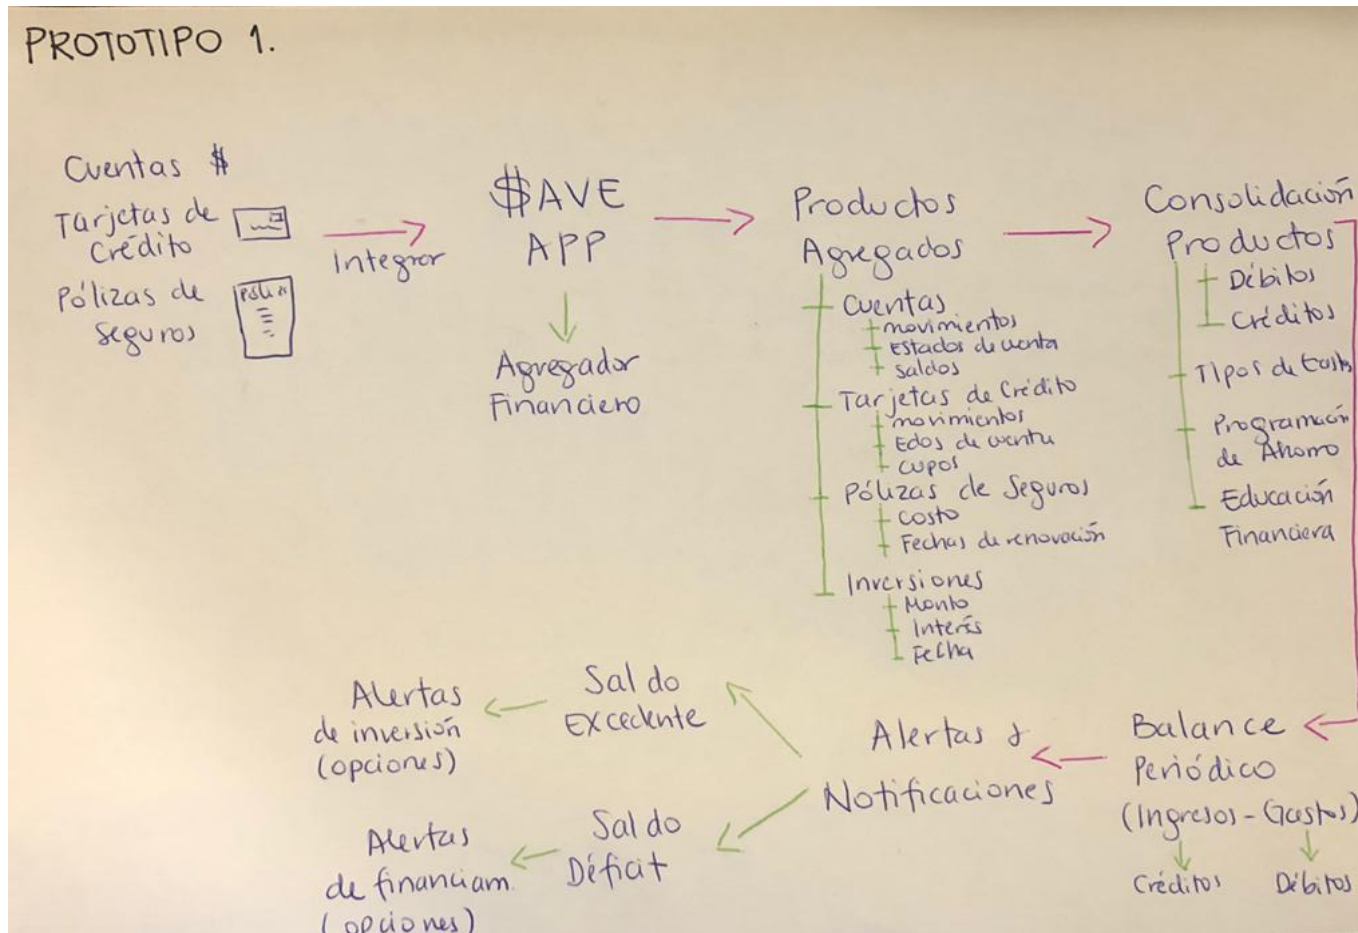 PROTOTIPO 1.
Cuentas $
Tarjetas de
Crédito
Pólizas de
Seguros
Póliza
Integrar
$AVE
APP
Agregador
Financiero
Productos
Agregados
Cuentas
movimientos
Estados de cuenta
Saldos
Tarjetas de Crédito
movimientos
Edos de cuenta
cupos
Pólizas de Seguros
costo
Fechas de renovación
Inversiones
Monto
Interés
Fecha
Consolidación
Productos
Débitos
Créditos
Tipos de
Programación
de Ahorro
Educación
Financiera
Balance
Periódico
(Ingresos - Gastos)
Créditos
Débitos
Alertas &
Notificaciones
Saldo
Excedente
Alertas
de inversión
(opciones)
Saldo
Déficit
Alertas
de financiam.
(opciones)